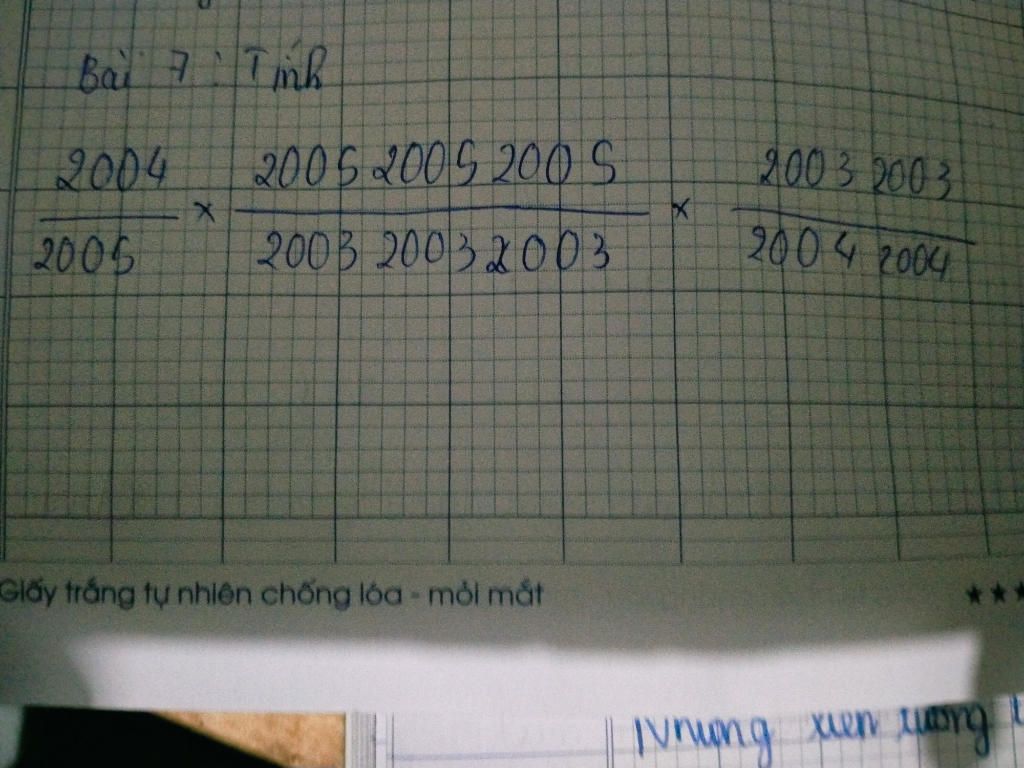 Bài 7 : Tính
2004 × 200520052005 × 20032003
2005 200320032003 20042004
Giấy trắng tự nhiên chống lóa - mỏi mắt ★★★